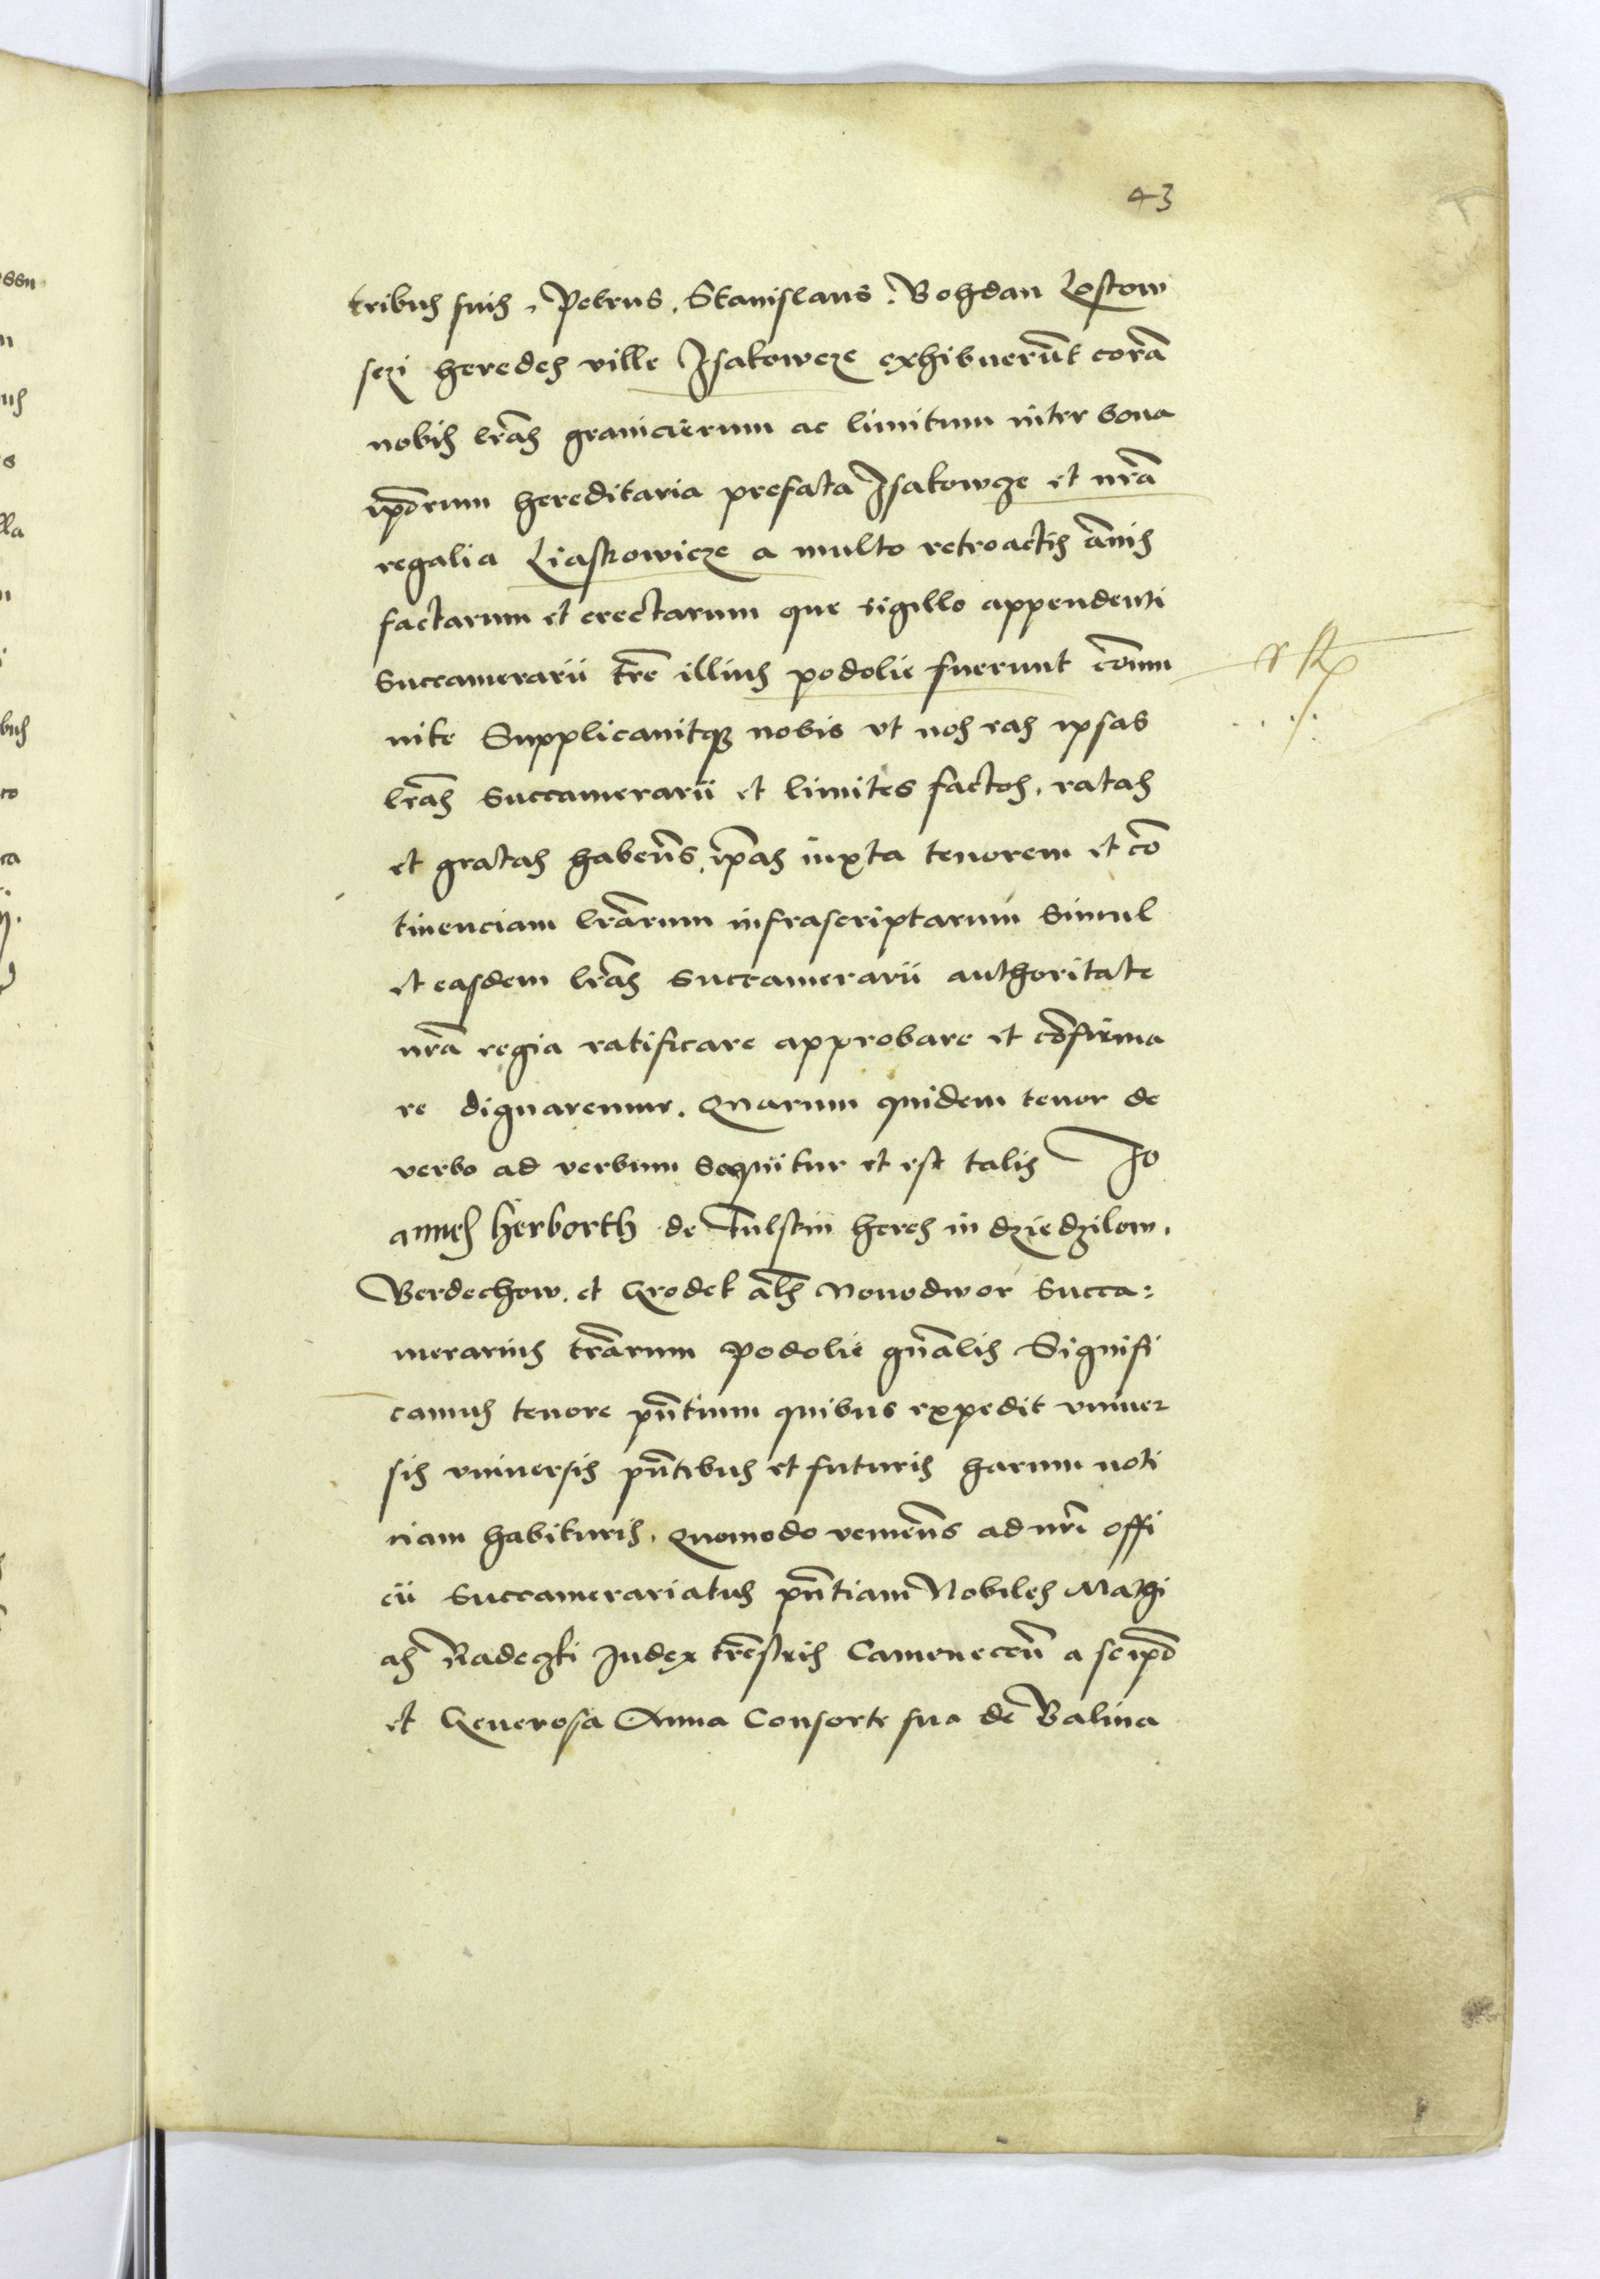 43
tribus suis, Petrus, Stanislaus, Bohdan Loscow
sczi heredes ville Isakowcze exhibuerūt corā
nobis lrās granicierum ac limitum inter bona
ip̄orum hereditaria prefata Isakowcze et nrā
regalia Liaskowicze a multo retroactis ānis
factarum et erectarum que sigillo appendenti
Succamerarii trē illius podolie fuerunt cōmu
nite Supplicauitq; nobis vt nos eas ipsas
lrās Succamerarii et limites factos, ratas
et gratas habeñs, ip̄as iuxta tenorem et cō
tinenciam lrārum infrascriptarum Simul
et easdem lrās Succamerarii authoritate
nrā regia ratificare approbare et cōfirma
re dignaremur. Quarum quidem tenor de
verbo ad verbum sequitur et est talis Jo
annes Herborth de Fulstin heres in dziedzilow,
Berdechow, et Grodek al̄s Nouodwor Succa:
merarius trārum Podolie gñalis Signifi
camus tenore pñtium quibus expedit vniuer
sis vniuersis pñtibus et futuris harum noti
ciam habituris, Quomodo venieñs ad nrī offi
cii Succamerariatus pñtiam Nobiles Mathi
as Radeczki Judex trēstris Camenecen̄ a seip̄o
et Generosa Anna Consorte sua de Balina